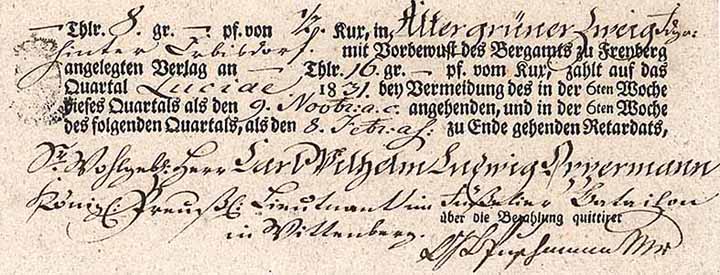 — Thlr. 8. gr. —. pf. von 1/2 Kux, in, Alter grüner Zweig Fdgr.
hinter Erbisdorf. mit Vorbewust des Bergamts zu Freyberg
angelegten Verlag an — Thlr. 16. gr. — pf. vom Kux, zahlt auf das
Quartal Luciae 1831. bey Vermeidung des in der 6ten Woche
dieses Quartals als den 9. Novbr: a. c. angehenden, und in der 6ten Woche
des folgenden Quartals, als den 8. Febr: a f: zu Ende gehenden Retardats,
Sr. Wohlgeb: Herr Carl Wilhelm Ludwig
Königl: Preuß: Lieutnant im Füselier Bataillon
über die Bezahlung quittiret
in Wittenberg.